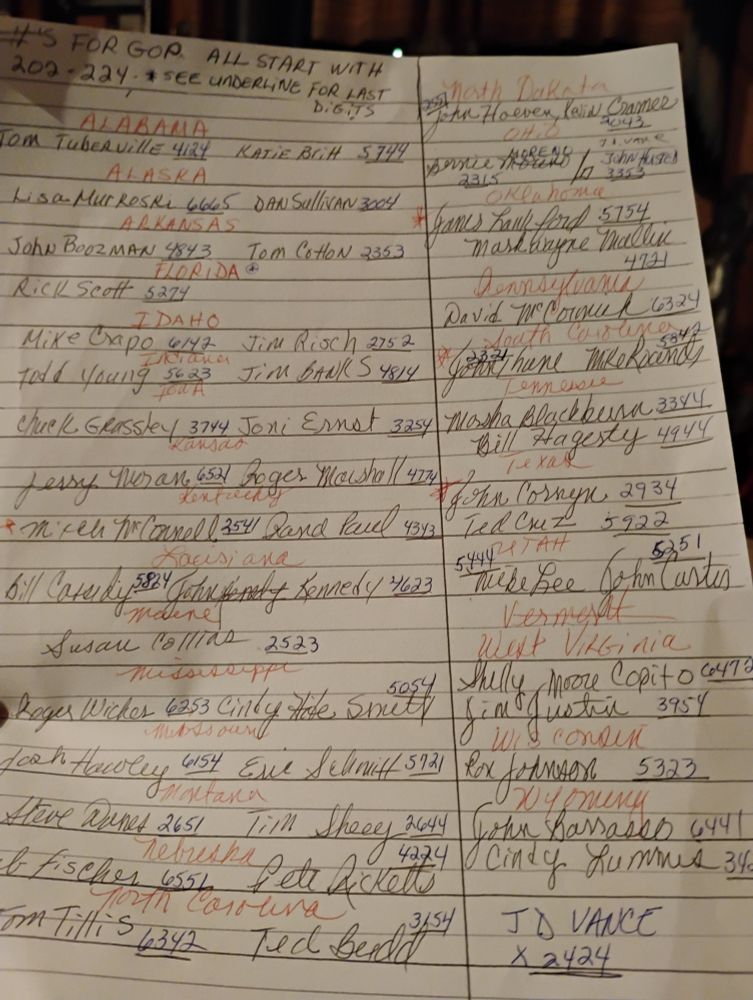 #'S FOR GOP. ALL START WITH
202-224- * SEE UNDERLINE FOR LAST
DIGITS
ALABAMA
Tom Tuberville 4124 Katie Britt 5744
ALASKA
Lisa Murkoski 6665 DAN Sullivan 3004
ARKANSAS
John Boozman 4843 Tom Cotton 2353
FLORIDA
Rick Scott 5274
IDAHO
Mike Crapo 6142 Jim Risch 2752
Indiana
Todd Young 5623 Jim BANKS 4814
Iowa
Chuck Grassley 3744 Joni Ernst 3254
Kansas
Jerry Moran 6521 Roger Marshall 4774
Kentucky
* Mitch McConnell 2541 Rand Paul 4343
Louisiana
Bill Cassidy 5824 John Kennedy 4623
Maine
Susan Collins 2523
Mississippi
Roger Wicker 6253 Cindy Hyde Smith 5054
Missouri
Josh Hawley 6154 Eric Schmitt 5721
Montana
Steve Daines 2651 Tim Sheey 2644
Nebraska
b Fischer 6551 Pete Ricketts 4224
North Carolina
Tom Tillis 6342 Ted Budd 3154
North Dakota
John Hoeven, Kevin Cramer
2043
OHIO
J.D. VANCE
MORENO
Bernie 2315 John Husted 3353
Oklahoma
* James Lankford 5754
Markwayne Mullin
4721
Pennsylvania
David McCormick 6324
South Carolina
* John Thune 2321 Mike Rounds 5842
Tennessee
Marsha Blackburn 3344
Bill Hagerty 4944
Texas
* John Cornyn 2934
Ted Cruz 5922
UTAH
5444 5251
Mike Lee John Curtis
Vermont
West Virginia
Shelly Moore Capito 6472
Jim Justice 3954
Wisconsin
Ron Johnson 5323
Wyoming
John Barrasso 6441
Cindy Lummis 34
JD VANCE
X 2424